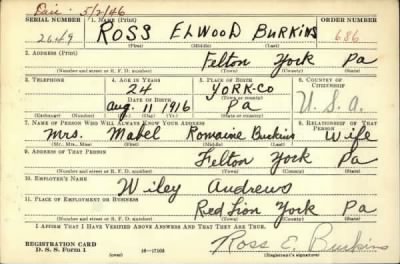 Dair. 5/2/46
SERIAL NUMBER 1. NAME (Print) ORDER NUMBER
2649 ROSS ELWOOD BURKINS 686
(First) (Middle) (Last)
2. ADDRESS (Print)
Felton York Pa
(Number and street or R. F. D. number) (Town) (County) (State)
3. TELEPHONE 4. AGE IN YEARS 5. PLACE OF BIRTH 6. COUNTRY OF CITIZENSHIP
24 YORK-CO
DATE OF BIRTH (Town or county)
Aug. 11 1916 Pa U.S.A.
(Exchange) (Number) (Mo.) (Day) (Yr.) (State or country)
7. NAME OF PERSON WHO WILL ALWAYS KNOW YOUR ADDRESS 8. RELATIONSHIP OF THAT PERSON
Mrs. Mabel Romaine Burkins Wife
(Mr., Mrs., Miss) (First) (Middle) (Last)
9. ADDRESS OF THAT PERSON
Felton York Pa
(Number and street or R. F. D. number) (Town) (County) (State)
10. EMPLOYER'S NAME
Wiley Andrews
11. PLACE OF EMPLOYMENT OR BUSINESS
Red Lion York Pa
(Number and street or R. F. D. number) (Town) (County) (State)
I AFFIRM THAT I HAVE VERIFIED ABOVE ANSWERS AND THAT THEY ARE TRUE.
REGISTRATION CARD
D. S. S. Form 1 (over) 16—17105 Ross E. Burkins
(Registrant's signature)